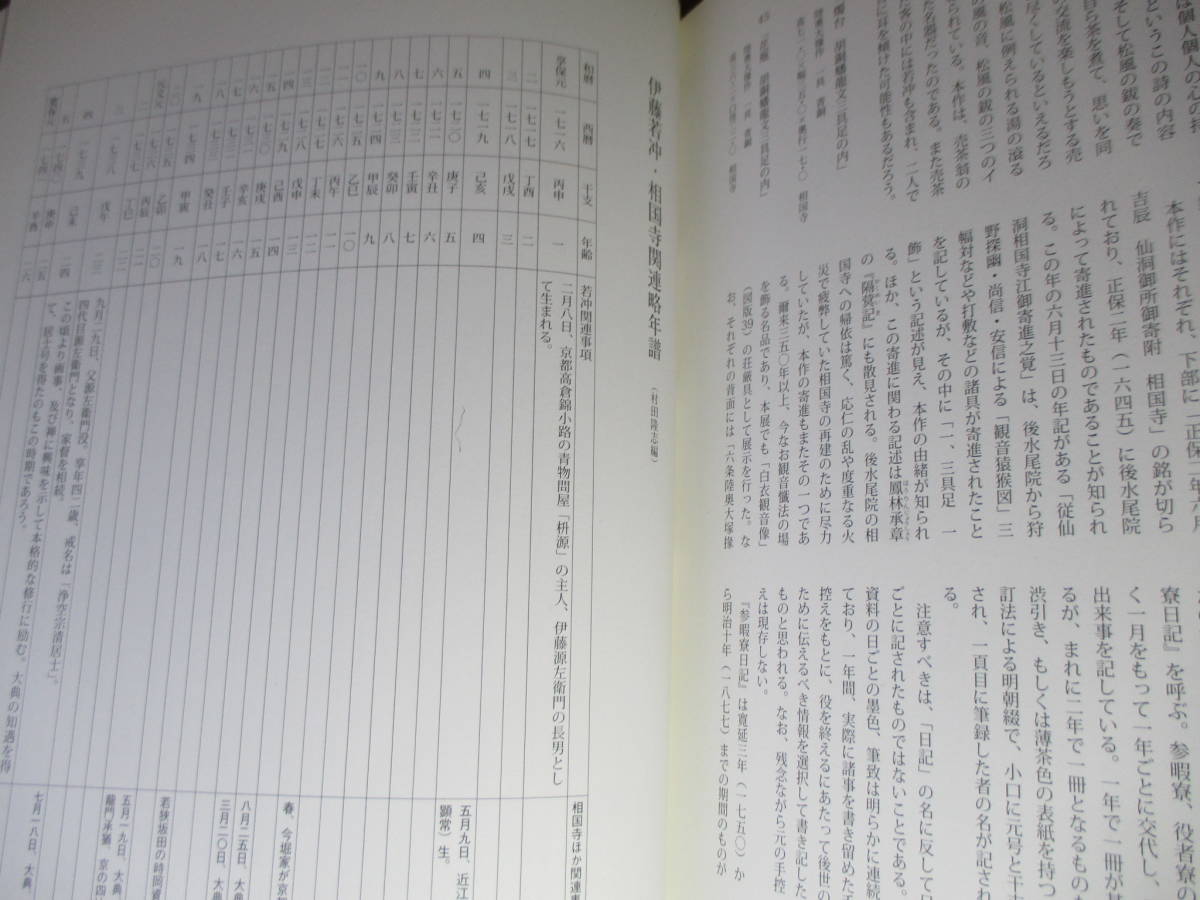 は個人個人の心をお
というこの詩の内容
そして松風の銚の奏で
自ら茶を煮て、思いを同
の交流を楽しもうとする売
尽くしているといえるだろ
松風に例えられる湯の滾る
の風の音、松風の銚の三つのイ
られている。本作は、売茶翁の
た名器だったのである。また売茶
た客の中には若冲も含まれ、二人で
に耳を傾けた可能性もあるだろう。
燭台 胡銅蟠龍文三具足の内
一具 青銅
相国寺
45 花瓶 胡銅蟠龍文三具足の内
一具 青銅
相国寺
本作にはそれぞれ、下部に「正保二年六月
吉辰 仙洞御所御寄附 相国寺」の銘が切ら
れており、正保二年(一六四五)に後水尾院
によって寄進されたものであることが知られ
る。この年の六月十三日の年記がある「従仙
洞相国寺江御寄進之覚」は、後水尾院から狩
野探幽・尚信・安信による「観音猿猴図」三
幅対などや打敷などの諸具が寄進されたこと
を記しているが、その中に「一、三具足 一
飾」という記述が見え、本作の由緒が知られ
る。ほか、この寄進に関わる記述は鳳林承章
の『隔蓂記』にも散見される。後水尾院の相
国寺への帰依は篤く、応仁の乱や度重なる火
災で疲弊していた相国寺の再建のために尽力
していたが、本作の寄進もまたその一つであ
る。爾来三五〇年以上、今なお観音懺法の場
を飾る名品であり、本展でも「白衣観音像」
(図版39)の荘厳具として展示を行った。な
お、それぞれの背面には「六条陸奥大塚掾
寮日記』を呼ぶ。参暇寮、役者寮の
く一月をもって一年ごとに交代し、
出来事を記している。一年で一冊が基
るが、まれに二年で一冊となるもの
渋引き、もしくは薄茶色の表紙を持つ
訂法による明朝綴で、小口に元号と干支
され、一頁目に筆録した者の名が記され
る。
注意すべきは、「日記」の名に反して日
ごとに記されたものではないことである。
資料の日ごとの墨色、筆致は明らかに連続
ており、一年間、実際に諸事を書き留めた手
控えをもとに、役を終えるにあたって後世の
ために伝えるべき情報を選択して書き記した
ものと思われる。なお、残念ながら元の手控
えは現存しない。
『参暇寮日記』は寛延三年(一七五〇)か
ら明治十年(一八七七)までの期間のものが
伊藤若冲・相国寺関連略年譜 (村田隆志編)
和暦 西暦 干支 年齢 若冲関連事項 相国寺ほか関連事
享保元 一七一六 丙申 一 二月八日、京都高倉錦小路の青物問屋「枡源」の主人、伊藤源左衛門の長男とし
て生まれる。
二 一七一七 丁酉 二
三 一七一八 戊戌 三
四 一七一九 己亥 四 五月九日、近江
顕常)生。
五 一七二〇 庚子 五
六 一七二一 辛丑 六
七 一七二二 壬寅 七
八 一七二三 癸卯 八
九 一七二四 甲辰 九
一〇 一七二五 乙巳 一〇
一一 一七二六 丙午 一一
一二 一七二七 丁未 一二
一三 一七二八 戊申 一三 春、今堀家が京都
一四 一七二九 己酉 一四
一五 一七三〇 庚戌 一五
一六 一七三一 辛亥 一六 八月二五日、大典
一七 一七三二 壬子 一七 三月二〇日、大典
一八 一七三三 癸丑 一八
一九 一七三四 甲寅 一九
二〇 一七三五 乙卯 二〇 若狭坂田の時岡
元文元 一七三六 丙辰 二一
二 一七三七 丁巳 二二 五月一九日、大典
三 一七三八 戊午 二三 九月二九日、父源左衛門没。享年四二歳、戒名は「浄空宗清居士」。
四代目源左衛門となり、家督を相続。
四 一七三九 己未 二四 この頃より画事、及び禅に興味を示して本格的な修行に励む。大典の知遇を得
て、居士号を得たのもこの時期であろう。 七月一八日、大典
五 一七四〇 庚申 二五
寛保元 一七四一 辛酉 二六